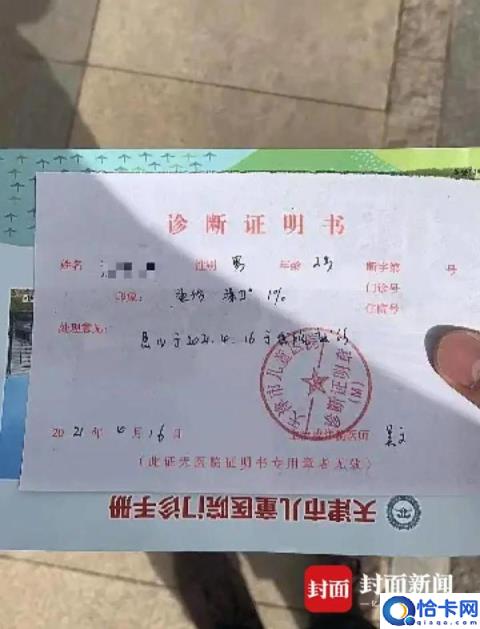 诊断证明书
姓名 性别 男 年龄 断字第 号
印象： 烧伤 深Ⅱ° 1% 门诊号
住院号
处理意见： 患儿于2021.4.16于我院
天津市儿童医院
诊断证明章
2021年4月16日
(此证无医院证明书专用章者无效)
天津市儿童医院门诊手册
封面 封面新闻
恰卡网
qiaqa.com